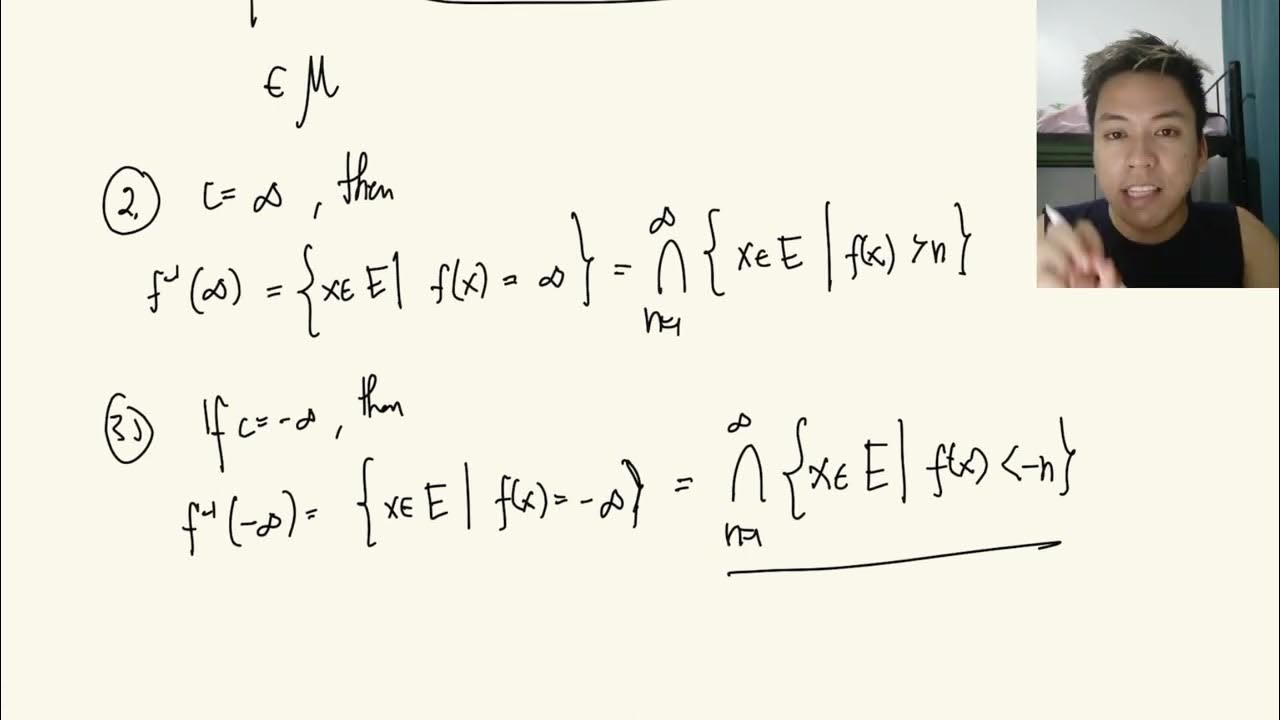 ∈ M
2. c = ∞, then
f⁻¹(∞) = {x∈E | f(x) = ∞} = ⋂_{n=1}^{∞} {x∈E | f(x) > n}
3.) If c = -∞, then
f⁻¹(-∞) = {x∈E | f(x) = -∞} = ⋂_{n=1}^{∞} {x∈E | f(x) < -n}